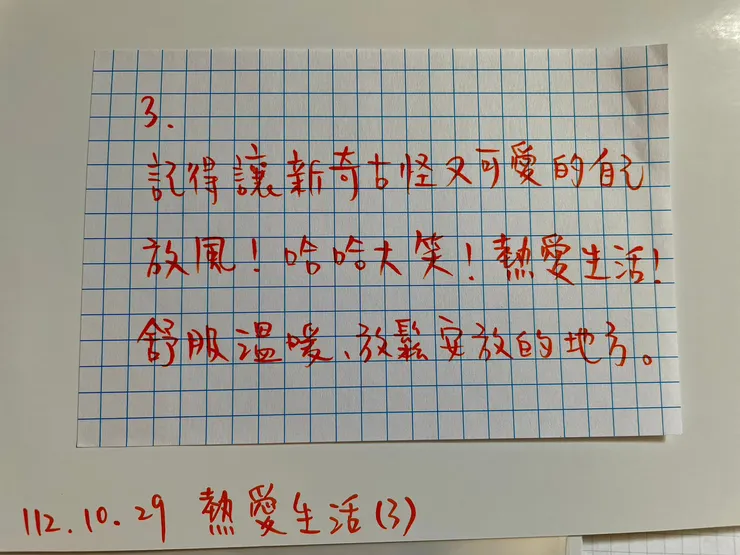 3.
記得讓新奇古怪又可愛的自己
放風！哈哈大笑！熱愛生活！
舒服溫暖、放鬆安放的地方。
112.10.29 熱愛生活(3)